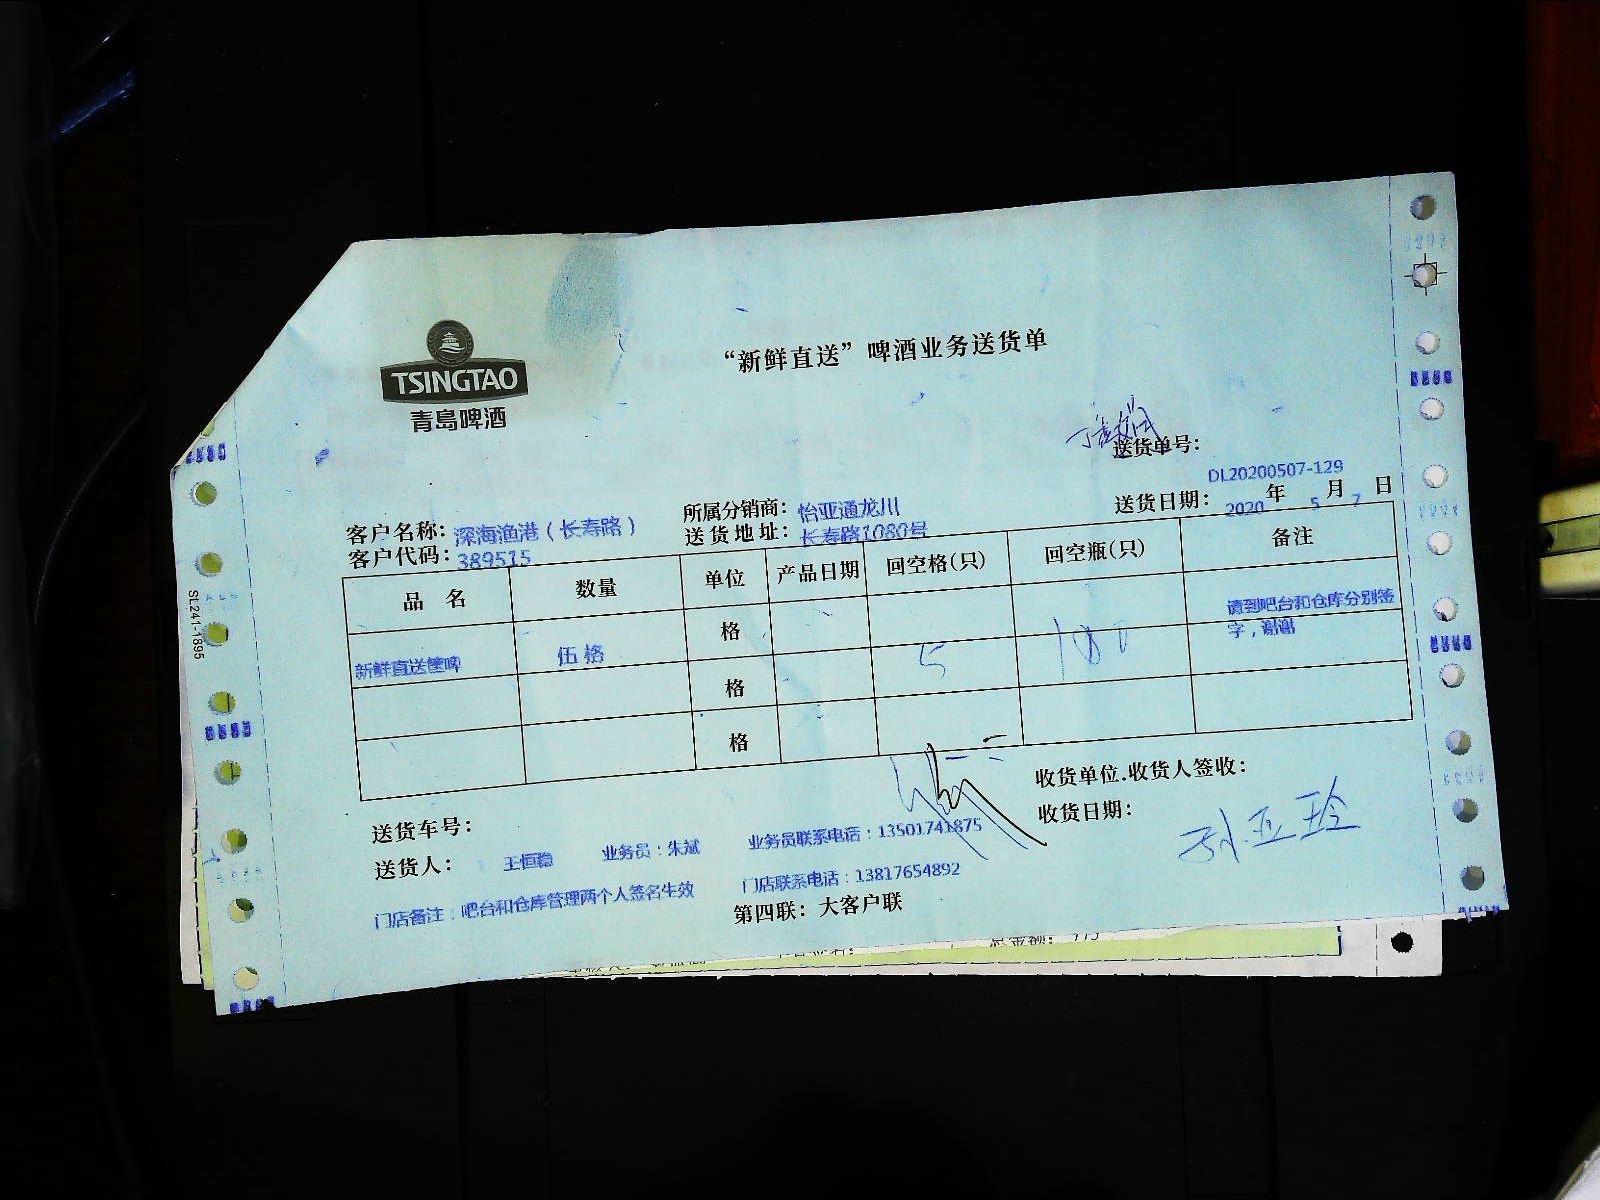 TSINGTAO
青岛啤酒
“新鲜直送”啤酒业务送货单
送货单号：
DL20200507-129
送货日期： 2020 年 5 月 7 日
客户名称：深海渔港（长寿路）
所属分销商：怡亚通龙川
客户代码：389515
送货地址：长寿路1080号
品 名 数量 单位 产品日期 回空格(只) 回空瓶(只) 备注
新鲜直送筐啤 伍格 格 5 请到吧台和仓库分别签
字，谢谢
格
格
收货单位.收货人签收：
收货日期：
孙亚玲
送货车号：
送货人： 王恒稳 业务员：朱斌 业务员联系电话：13501741875
门店备注：吧台和仓库管理两个人签名生效 门店联系电话：13817654892
第四联：大客户联
SL241-1895
总金额：775